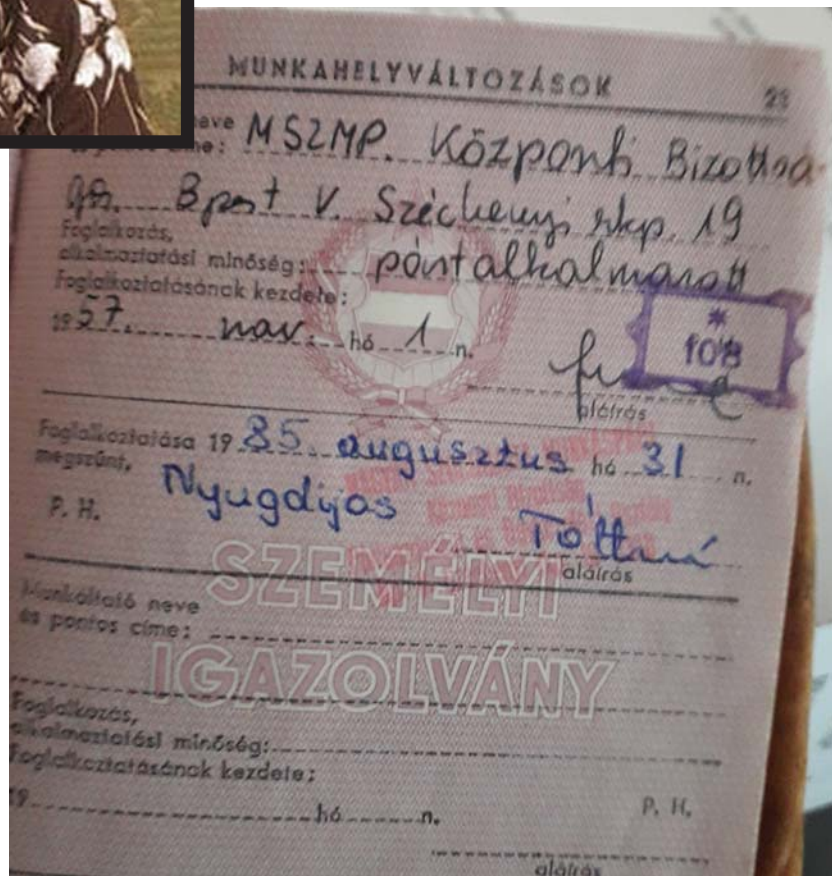 MUNKAHELYVÁLTOZÁSOK
neve MSZMP. Központi Bizottsá
címe:
ga. Bpest V. Széchenyi rkp. 19
Foglalkozás,
alkalmaztatási minőség: pártalkalmazott
Foglalkoztatásának kezdete:
1957. nov. hó 1 n.
aláírás
Foglalkoztatása 1985. augusztus hó 31 n.
megszűnt, Nyugdíjas
P. H. Tóthné
aláírás
SZEMÉLYI
IGAZOLVÁNY
Munkáltató neve
és pontos címe:
Foglalkozás,
alkalmaztatási minőség:
Foglalkoztatásának kezdete:
19 hó n. P. H.
aláírás